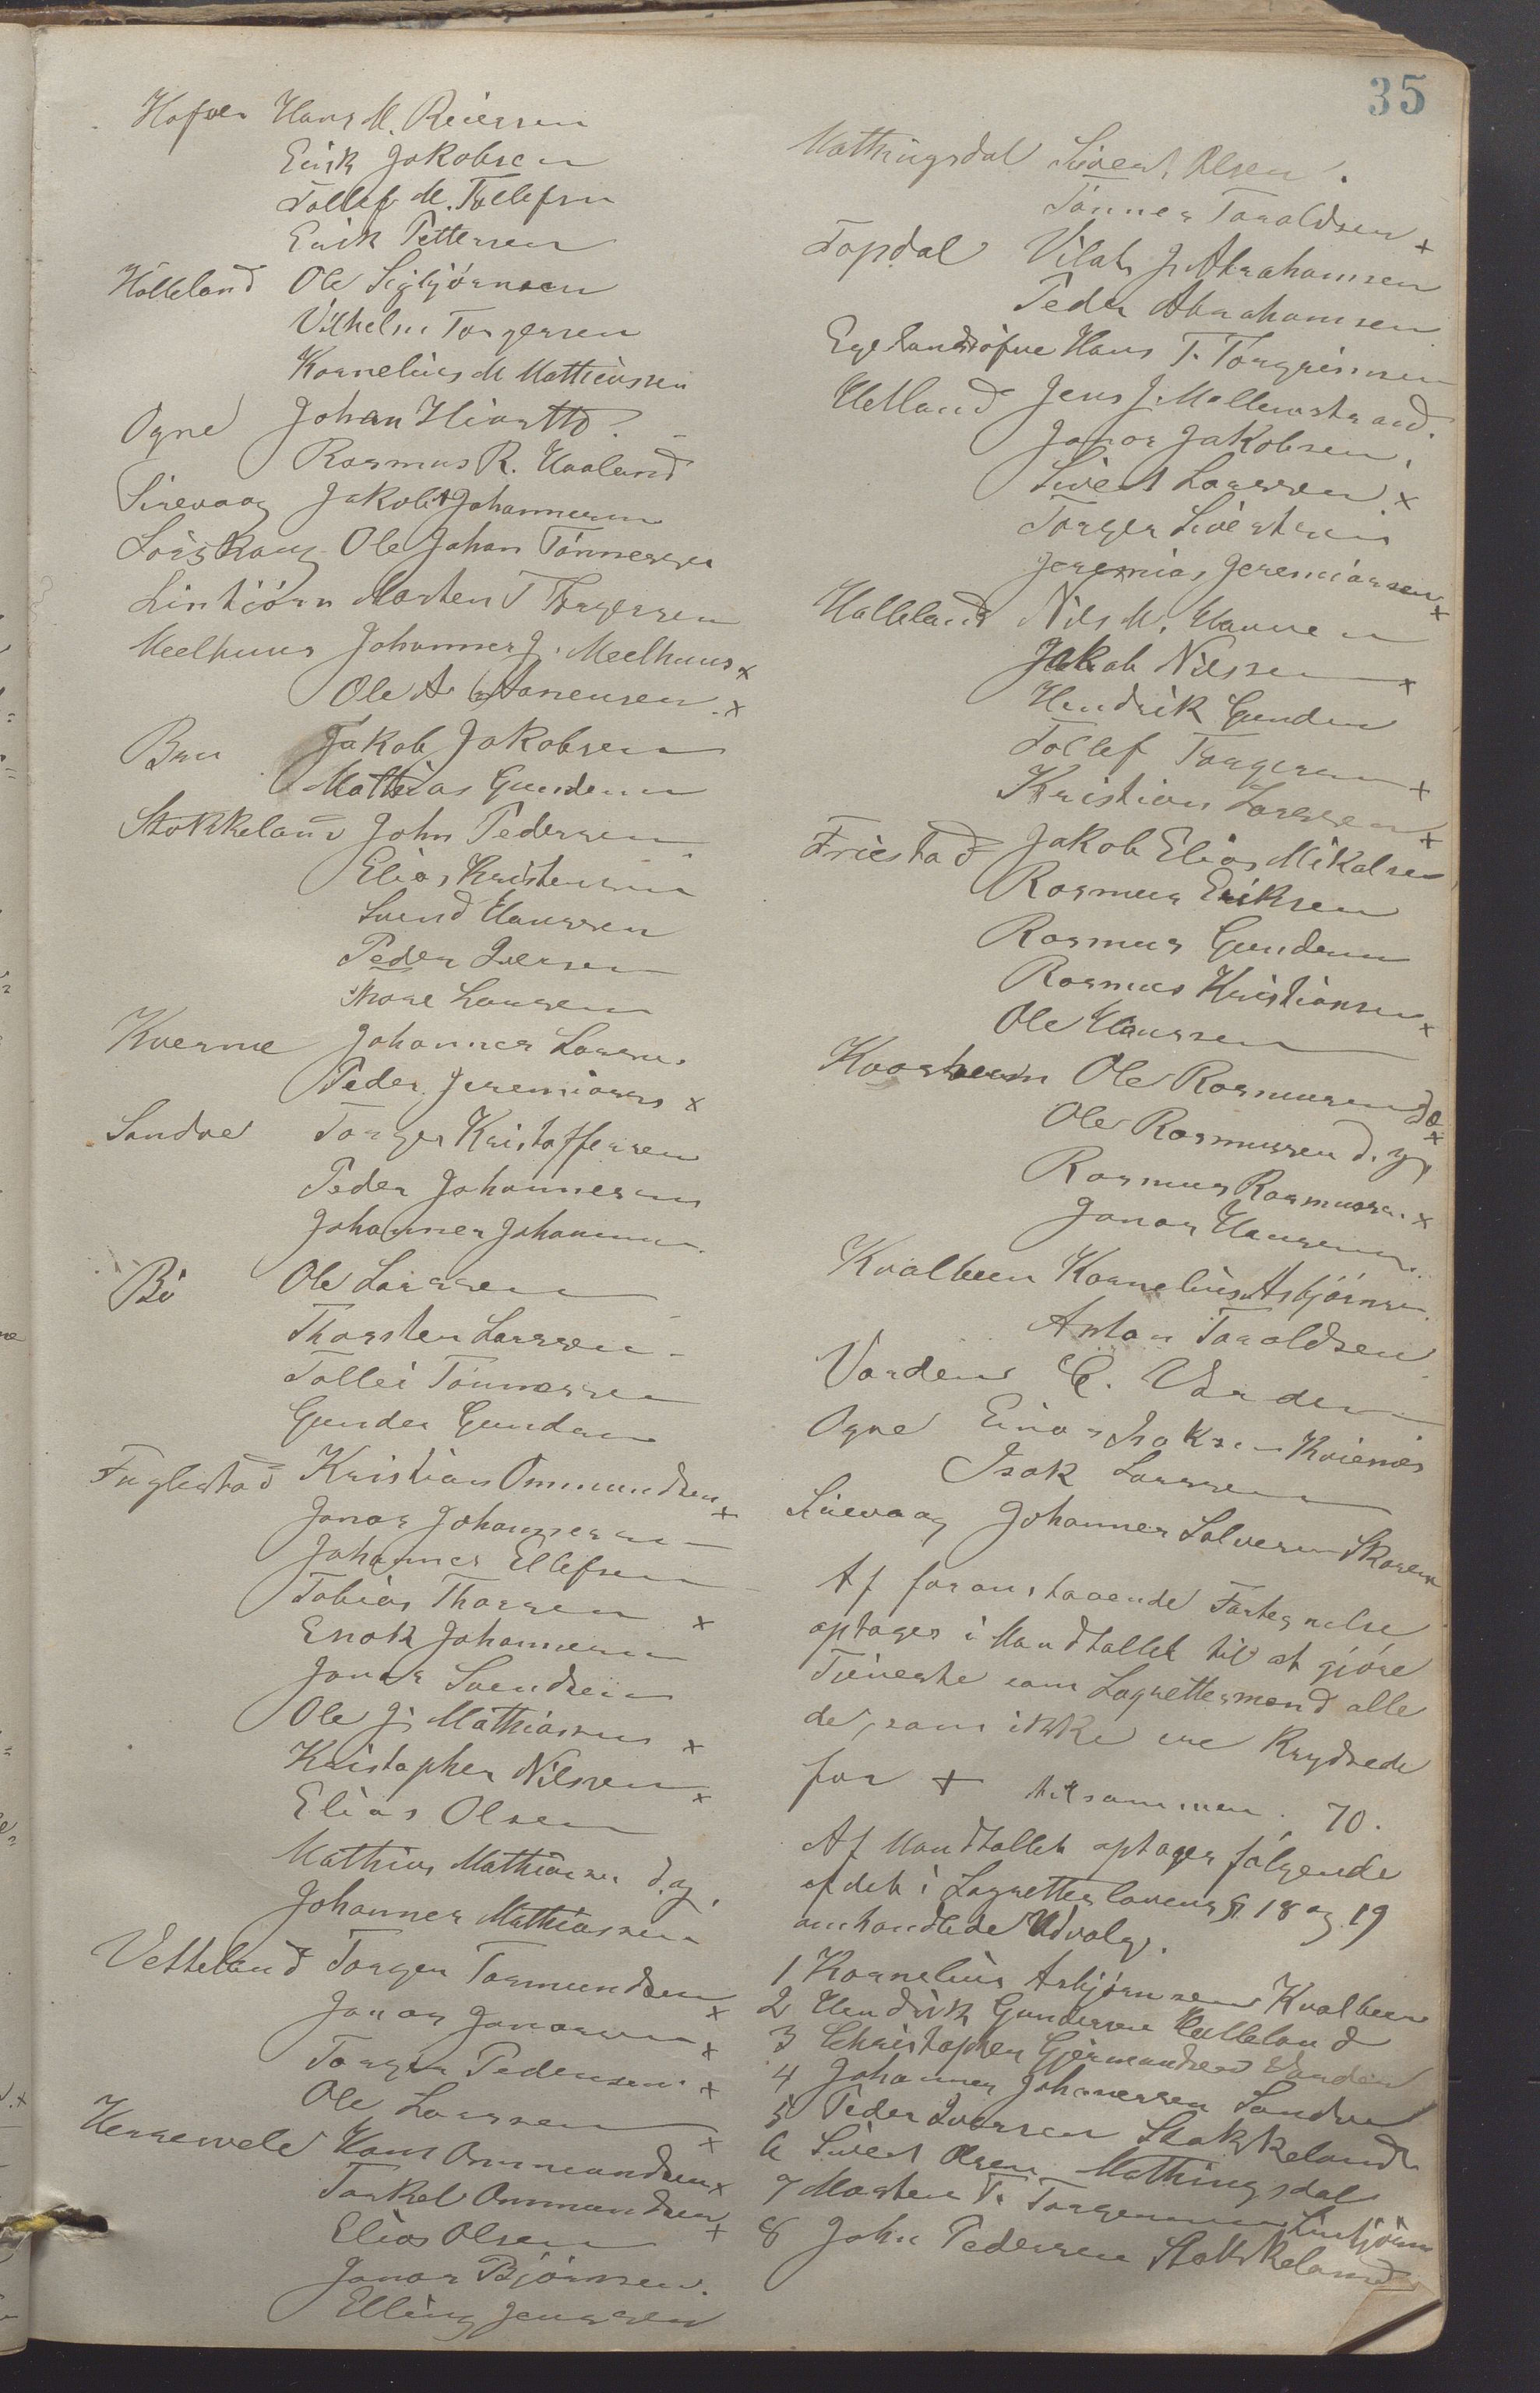 35
Hafver Hans M. Reiersen
Erik Jakobsen
Tollef M. Tollefsen
Erik Pettersen
Hölleland Ole Sigbjörnsen
Vilhelm Torgersen
Kornelius M Mathiassen
Ogne Johan Hiorth
Rasmus R. Haaland
Sirevaag Jakob Johannesen
Ole Johan Tönnessen
Lintjörn Morten T Torgersen
Meelhuus Johannes J. Meelhuus x
Ole A. Aanensen x
Bru Jakob Jakobsen
Mathias Gundersen
Stokkeland John Pedersen
Elias Kristensen
Svend Hanssen
Peder Iversen
Thore Larsen
Kverme Johannes Larsen
Peder Jeremiass x
Sandve Torger Kristoffersen
Peder Johannesen
Johannes Johannesen
Bö Ole Larssen
Thorsten Larssen
Tollei Tönnessen
Gunder Gundersen
Fuglestad Kristian Ommundsen x
Jonas Johannesen
Johannes Ellefsen
Tobias Thorsen x
Enok Johannesen
Jonas Svendsen
Ole J. Mathiassen x
Kristopher Nilssen x
Elias Olsen
Mathias Mathiassen d.y.
Johannes Mathiassen
Vetteland Torger Tormundsen x
Jonas Jonassen x
Torger Pedersen x
Ole Larssen x
Herrevele Hans Ommundsen x
Torkel Ommundsen x
Elias Olsen
Jonas Björnsen
Elling Janssen
Mathingsdal Sivert Olsen.
Tönnes Taraldsen x
Topdal Vilah J. Abrahamsen
Peder Abrahamsen
Hans T. Torgrimsen
Hetland Jens J. Mellemstrand.
Jonas Jakobsen
Sivert Larssen x
Torger Sivertsen
Jeremias Jeremiassen x
Halleland Nils M. Hansen
Jakob Nilssen x
Hendrik Gundersen
Tollef Torgersen x
Kristian Larssen x
Friestad Jakob Elias Mikalsen
Rasmus Eriksen
Rasmus Gundersen
Rasmus Kristiansen x
Ole Hanssen
Kvasheim Ole Rasmussen d.æ x
Ole Rasmussen d. y.
Rasmus Rasmussen x
Jonas Hansen
Kvalbeen Kornelius Asbjörnsen
Anton Taraldsen
Varden C. Varden
Ogne Einar Isaksen Kvienæs
Isak Larssen
Sirevaag Johannes Salvesen Skaren
Af foranstaaende Fortegnelse
optages i Mandtallet til at gjöre
Tjeneste som Lagrettesmænd alle
de, som ikke ere Krydsede
for + tilsammen 70.
Af Mandtallet optages fölgende
af det i Lagrettes lovens §§ 18 og 19
omhandlede Udvalg.
1 Kornelius Asbjörnsen Kvalbeen
2 Hendrik Gundersen Halleland
3 Christopher Gjermundsen Varden
4 Johannes Johannessen Sandve
5 Peder Iversen Stokkeland
6 Sivert Olsen Mathingsdal
7 Morten T. Torgersen Lintjörn
8 John Pedersen Stokkeland